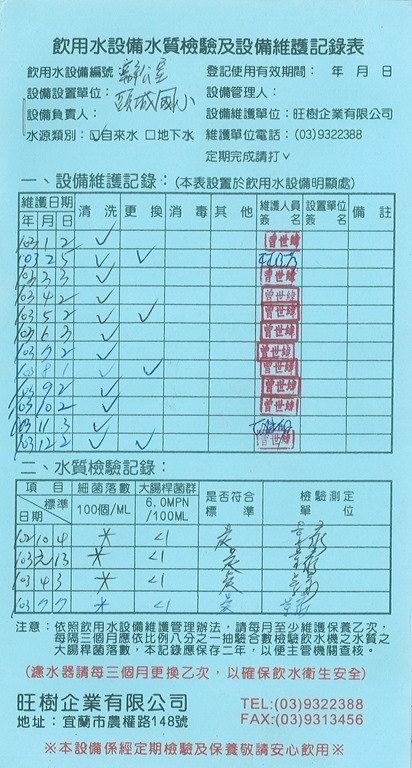 飲用水設備水質檢驗及設備維護記錄表
飲用水設備編號：辦公室 登記使用有效期間： 年 月 日
設備設置單位：頭城國小 設備管理人：
設備負責人： 設備維護單位：旺樹企業有限公司
水源類別：☑自來水 □地下水 維護單位電話：(03)9322388
定期完成請打✓
一、設備維護記錄：(本表設置於飲用水設備明顯處)
維護日期 清洗 更換 消毒 其他 維護人員簽名 設置單位簽名 備註
年 月 日
103 1 2 ✓ 曾世緯
103 2 5 ✓ ✓
103 3 3 ✓ 曾世緯
103 4 2 ✓ 曾世緯
103 5 2 ✓ ✓ 曾世緯
103 6 3 ✓ 曾世緯
103 7 2 ✓ 曾世緯
103 8 1 ✓ ✓ 曾世緯
103 9 2 ✓ 曾世緯
103 10 2 ✓ 曾世緯
103 11 3 ✓
103 12 2 ✓ ✓ 曾世緯
二、水質檢驗記錄：
項目 細菌落數 大腸桿菌群 是否符合標準 檢驗測定單位
標準 100個/ML 6.0MPN/100ML
日期
102 10 4 * <1
103 元 13 * <1
103 4 3 * <1
103 7 7 * <1 是
注意：依照飲用水設備維護管理辦法，請每月至少維護保養乙次，
每隔三個月應依比例八分之一抽驗台數檢驗飲水機之水質之
大腸桿菌落數，本記錄應保存二年，以便主管機關查核。
(濾水器請每三個月更換乙次，以確保飲水衛生安全)
旺樹企業有限公司 TEL:(03)9322388
地址：宜蘭市農權路148號 FAX:(03)9313456
※本設備係經定期檢驗及保養敬請安心飲用※